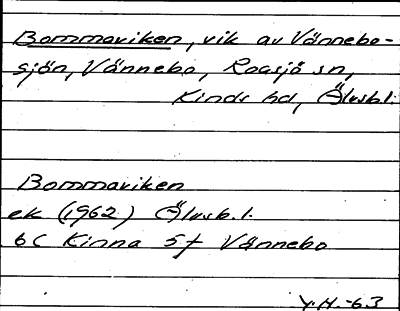 Bommaviken, vik av Vännebo-
sjön, Vännebo, Roasjö sn,
Kinds hd, Älvsb.l.
Bommaviken
ek (1962) Älvsb.l.
6C Kinna 5f Vännebo
Y.H. -63